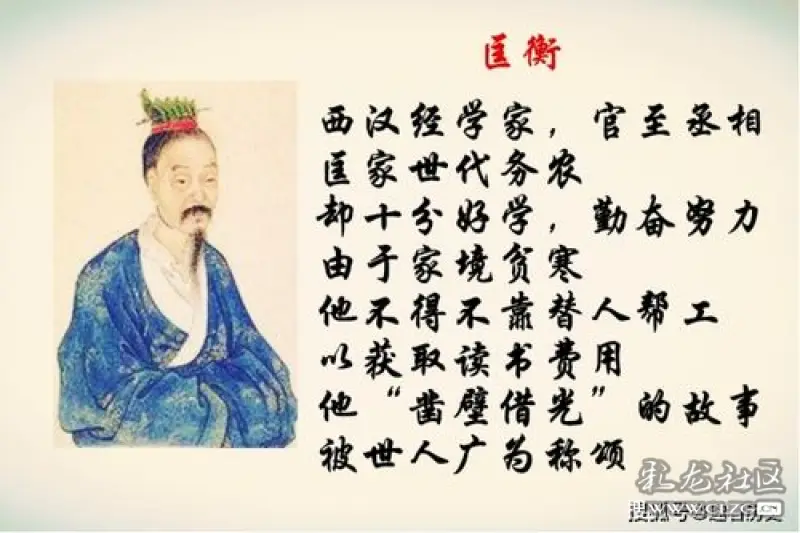 匡衡
西汉经学家，官至丞相
匡家世代务农
却十分好学，勤奋努力
由于家境贫寒
他不得不靠替人帮工
以获取读书费用
他“凿壁借光”的故事
被世人广为称颂
社区